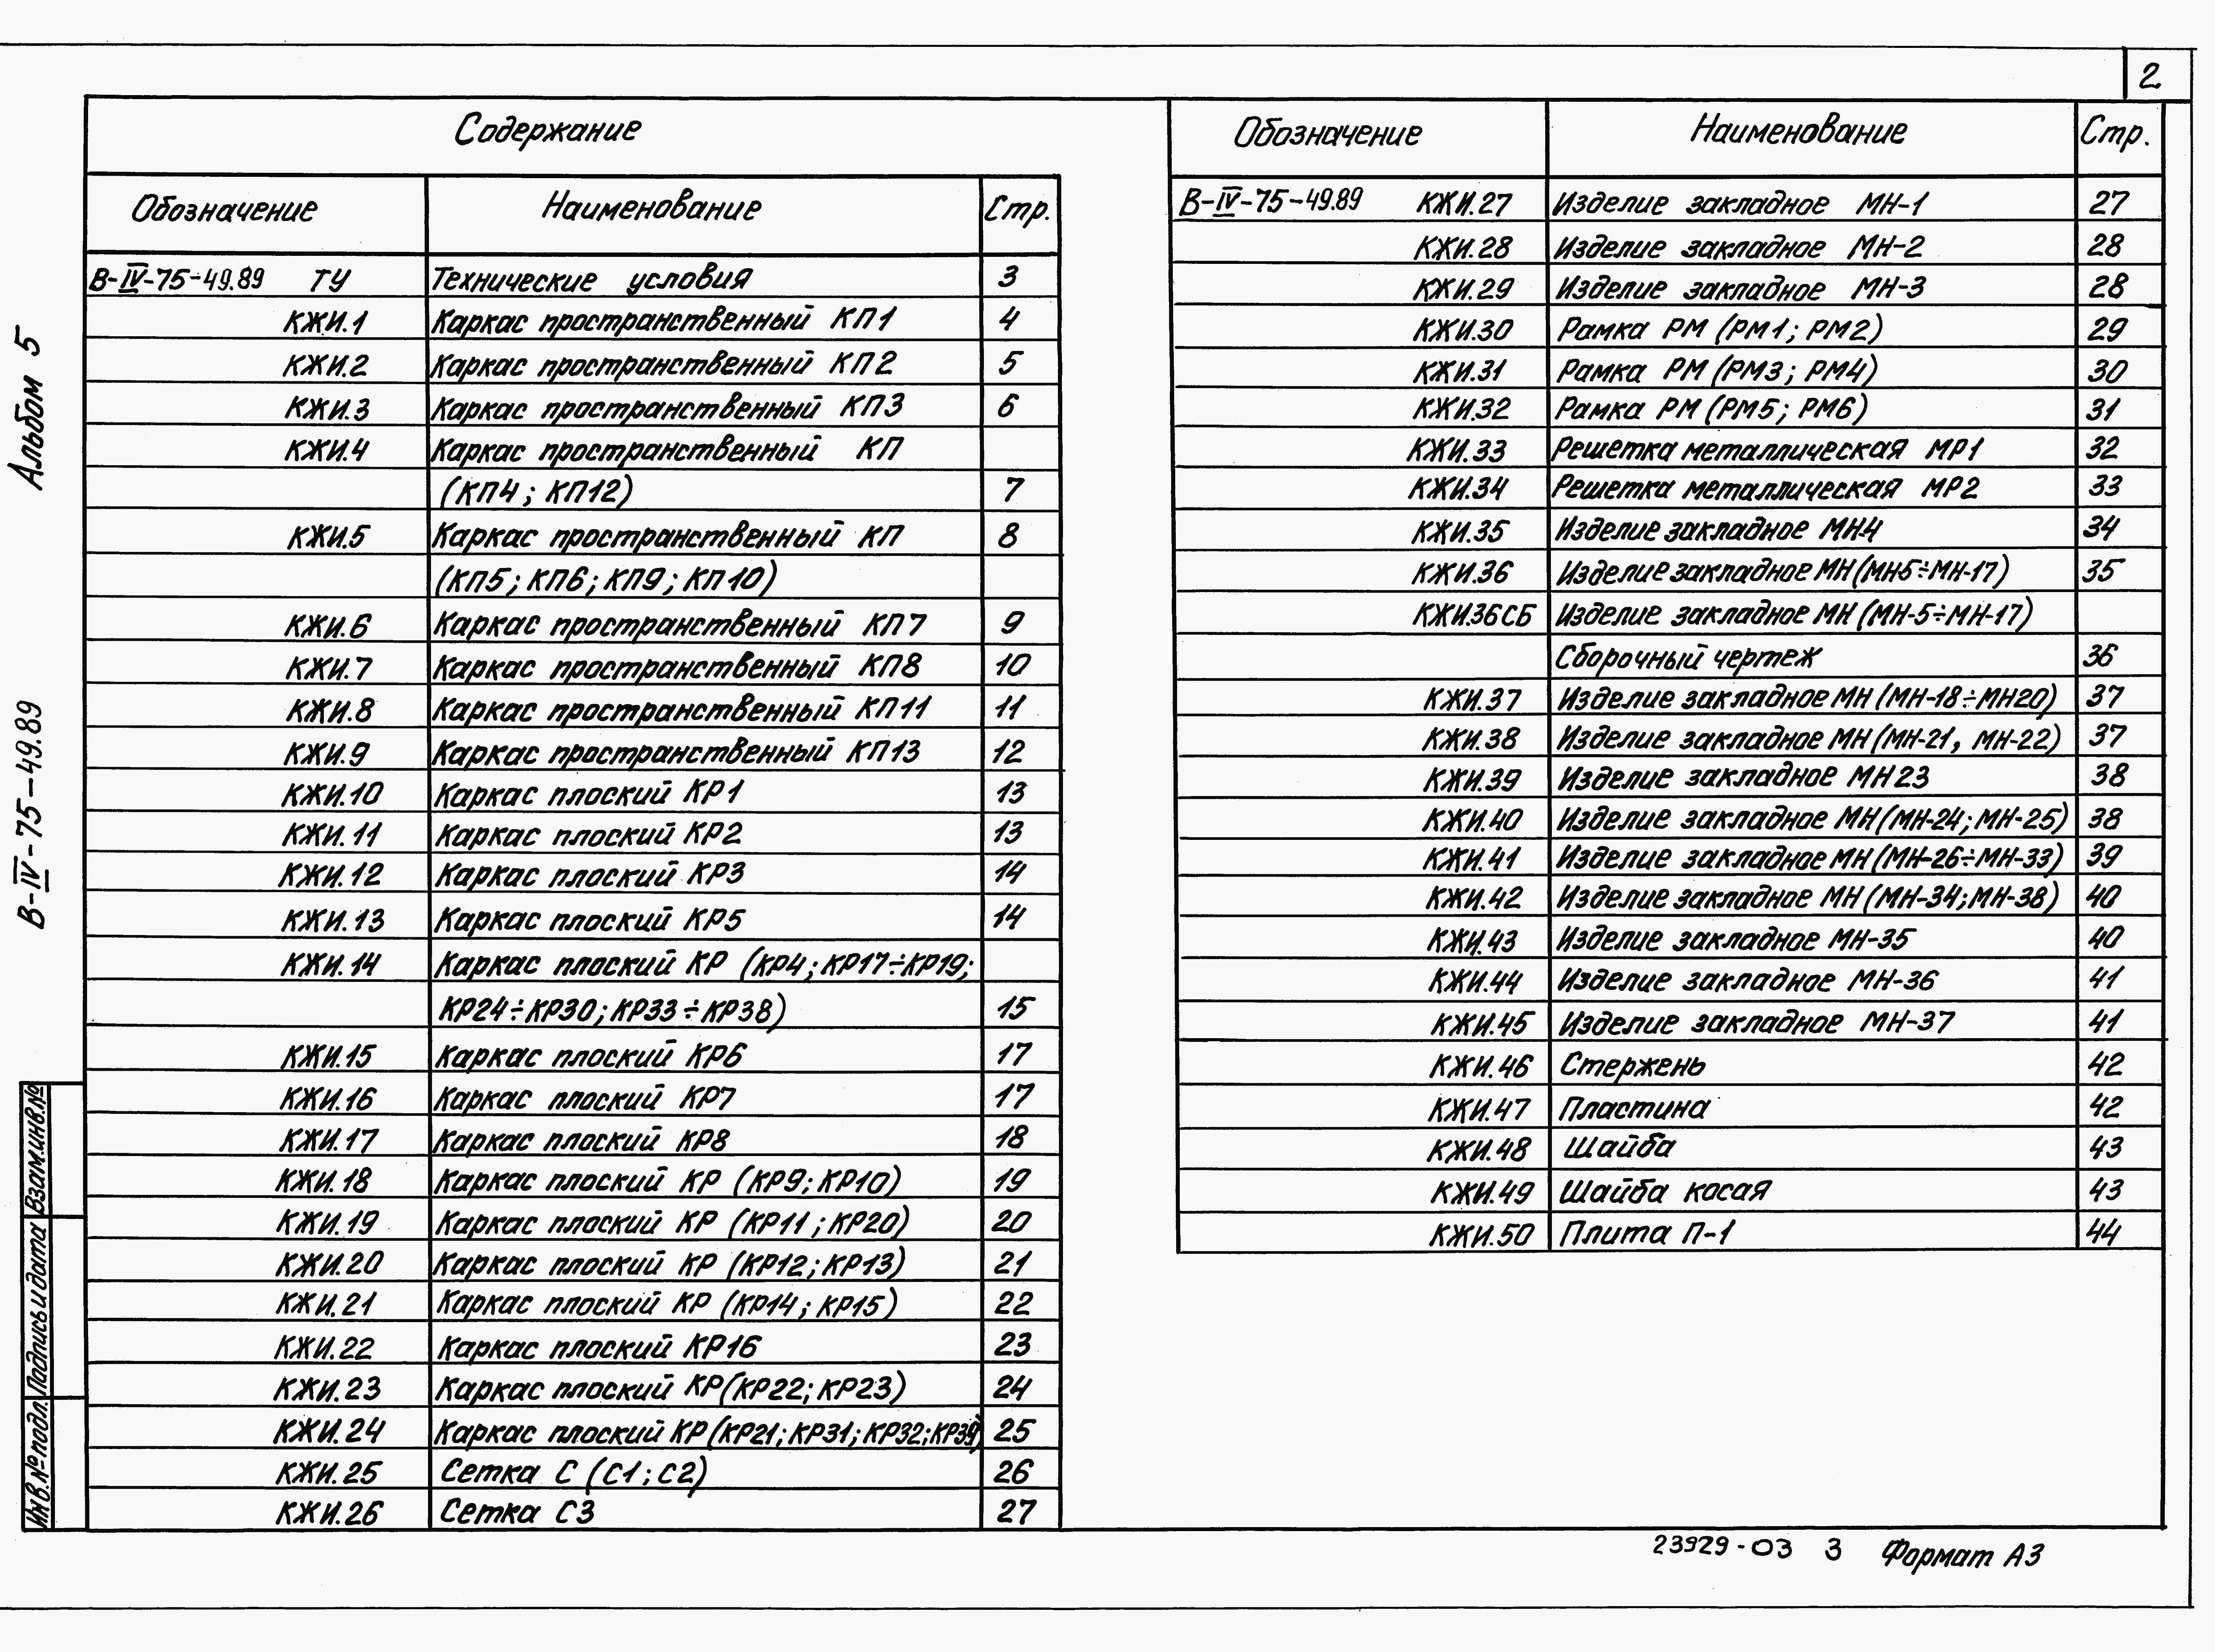 2
Содержание
Обозначение Наименование Стр.
В-IV-75-49.89 ТУ Технические условия 3
КЖИ.1 Каркас пространственный КП1 4
КЖИ.2 Каркас пространственный КП2 5
КЖИ.3 Каркас пространственный КП3 6
КЖИ.4 Каркас пространственный КП
(КП4; КП12) 7
КЖИ.5 Каркас пространственный КП 8
(КП5; КП6; КП9; КП10)
КЖИ.6 Каркас пространственный КП7 9
КЖИ.7 Каркас пространственный КП8 10
КЖИ.8 Каркас пространственный КП11 11
КЖИ.9 Каркас пространственный КП13 12
КЖИ.10 Каркас плоский КР1 13
КЖИ.11 Каркас плоский КР2 13
КЖИ.12 Каркас плоский КР3 14
КЖИ.13 Каркас плоский КР5 14
КЖИ.14 Каркас плоский КР (КР4; КР17÷КР19;
КР24÷КР30; КР33÷КР38) 15
КЖИ.15 Каркас плоский КР6 17
КЖИ.16 Каркас плоский КР7 17
КЖИ.17 Каркас плоский КР8 18
КЖИ.18 Каркас плоский КР (КР9; КР10) 19
КЖИ.19 Каркас плоский КР (КР11; КР20) 20
КЖИ.20 Каркас плоский КР (КР12; КР13) 21
КЖИ.21 Каркас плоский КР (КР14; КР15) 22
КЖИ.22 Каркас плоский КР16 23
КЖИ.23 Каркас плоский КР(КР22; КР23) 24
КЖИ.24 Каркас плоский КР(КР21; КР31; КР32; КР39) 25
КЖИ.25 Сетка С (С1; С2) 26
КЖИ.26 Сетка С3 27
Обозначение Наименование Стр.
В-IV-75-49.89 КЖИ.27 Изделие закладное МН-1 27
КЖИ.28 Изделие закладное МН-2 28
КЖИ.29 Изделие закладное МН-3 28
КЖИ.30 Рамка РМ (РМ1; РМ2) 29
КЖИ.31 Рамка РМ (РМ3; РМ4) 30
КЖИ.32 Рамка РМ (РМ5; РМ6) 31
КЖИ.33 Решетка металлическая МР1 32
КЖИ.34 Решетка металлическая МР2 33
КЖИ.35 Изделие закладное МН4 34
КЖИ.36 Изделие закладное МН(МН5÷МН-17) 35
КЖИ.36СБ Изделие закладное МН (МН-5÷МН-17)
Сборочный чертеж 36
КЖИ.37 Изделие закладное МН (МН-18÷МН20) 37
КЖИ.38 Изделие закладное МН (МН-21, МН-22) 37
КЖИ.39 Изделие закладное МН23 38
КЖИ.40 Изделие закладное МН (МН-24; МН-25) 38
КЖИ.41 Изделие закладное МН (МН-26÷МН-33) 39
КЖИ.42 Изделие закладное МН (МН-34; МН-38) 40
КЖИ.43 Изделие закладное МН-35 40
КЖИ.44 Изделие закладное МН-36 41
КЖИ.45 Изделие закладное МН-37 41
КЖИ.46 Стержень 42
КЖИ.47 Пластина 42
КЖИ.48 Шайба 43
КЖИ.49 Шайба косая 43
КЖИ.50 Плита П-1 44
Альбом 5
В-IV-75-49.89
Взам.инв.№
Подпись и дата
Инв.№ подл.
23929-03 3 Формат А3